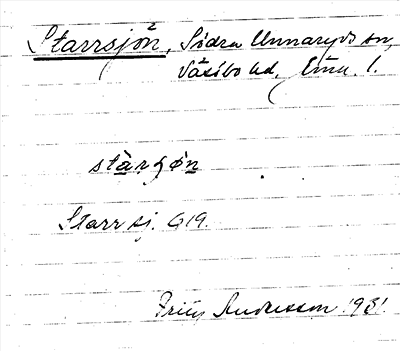 Starrsjön, Södra Unnaryds sn,
Västbo hd,
stàrʃø̀n
Starrsj. G19.
Fritz Andersson 1931.